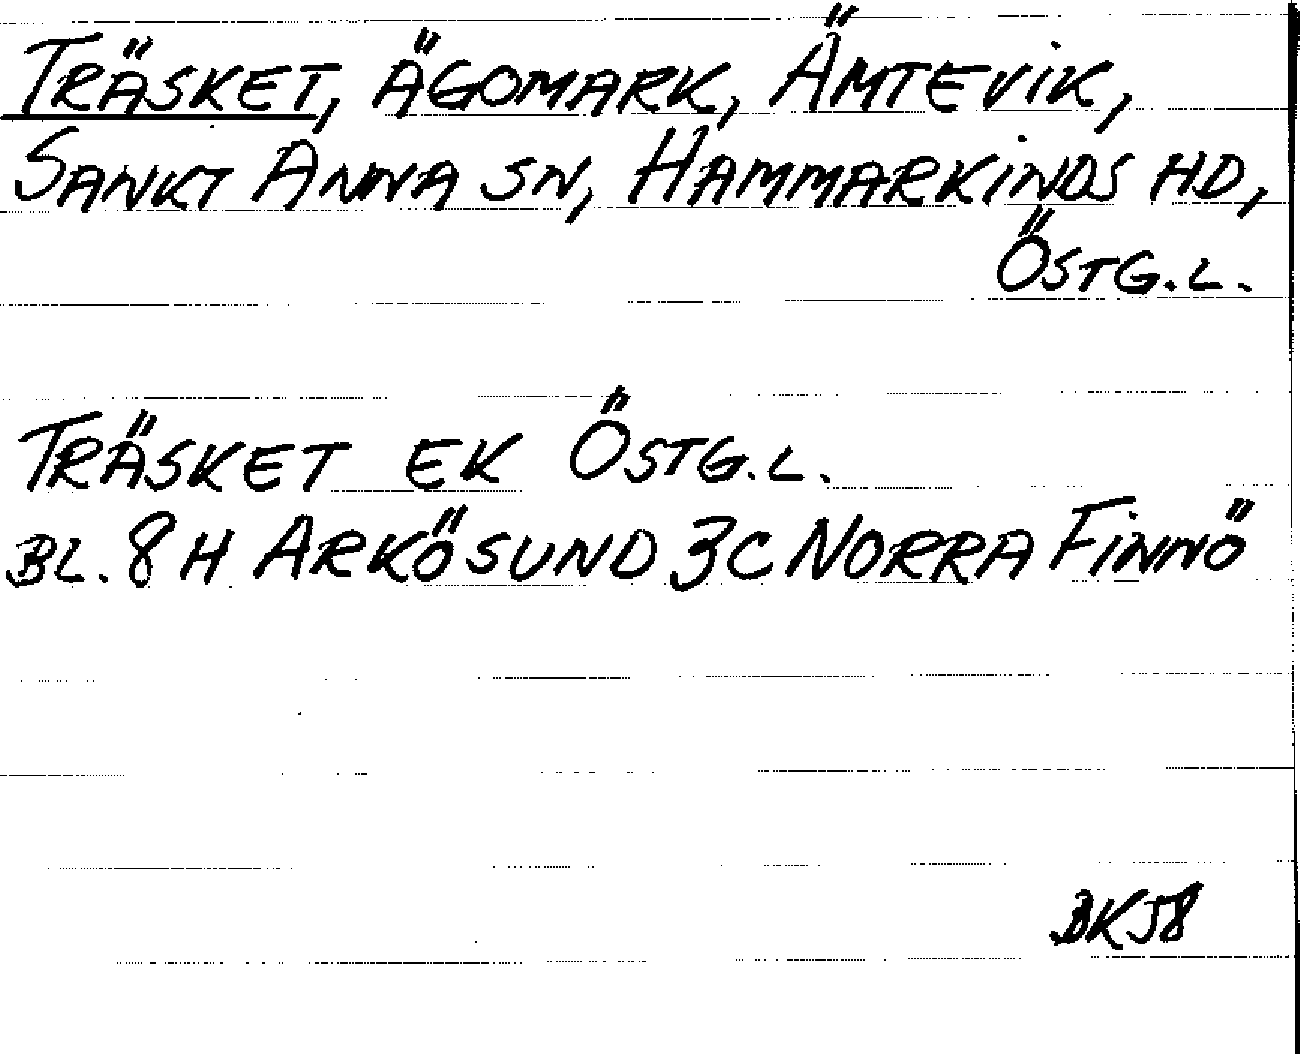 TRÄSKET, ÄGOMARK, ÄMTEVIK,
SANKT ANNA SN, HAMMARKINDS HD,
ÖSTG.L.
TRÄSKET EK ÖSTG.L.
BL. 8H ARKÖSUND 3C NORRA FINNÖ
BK58